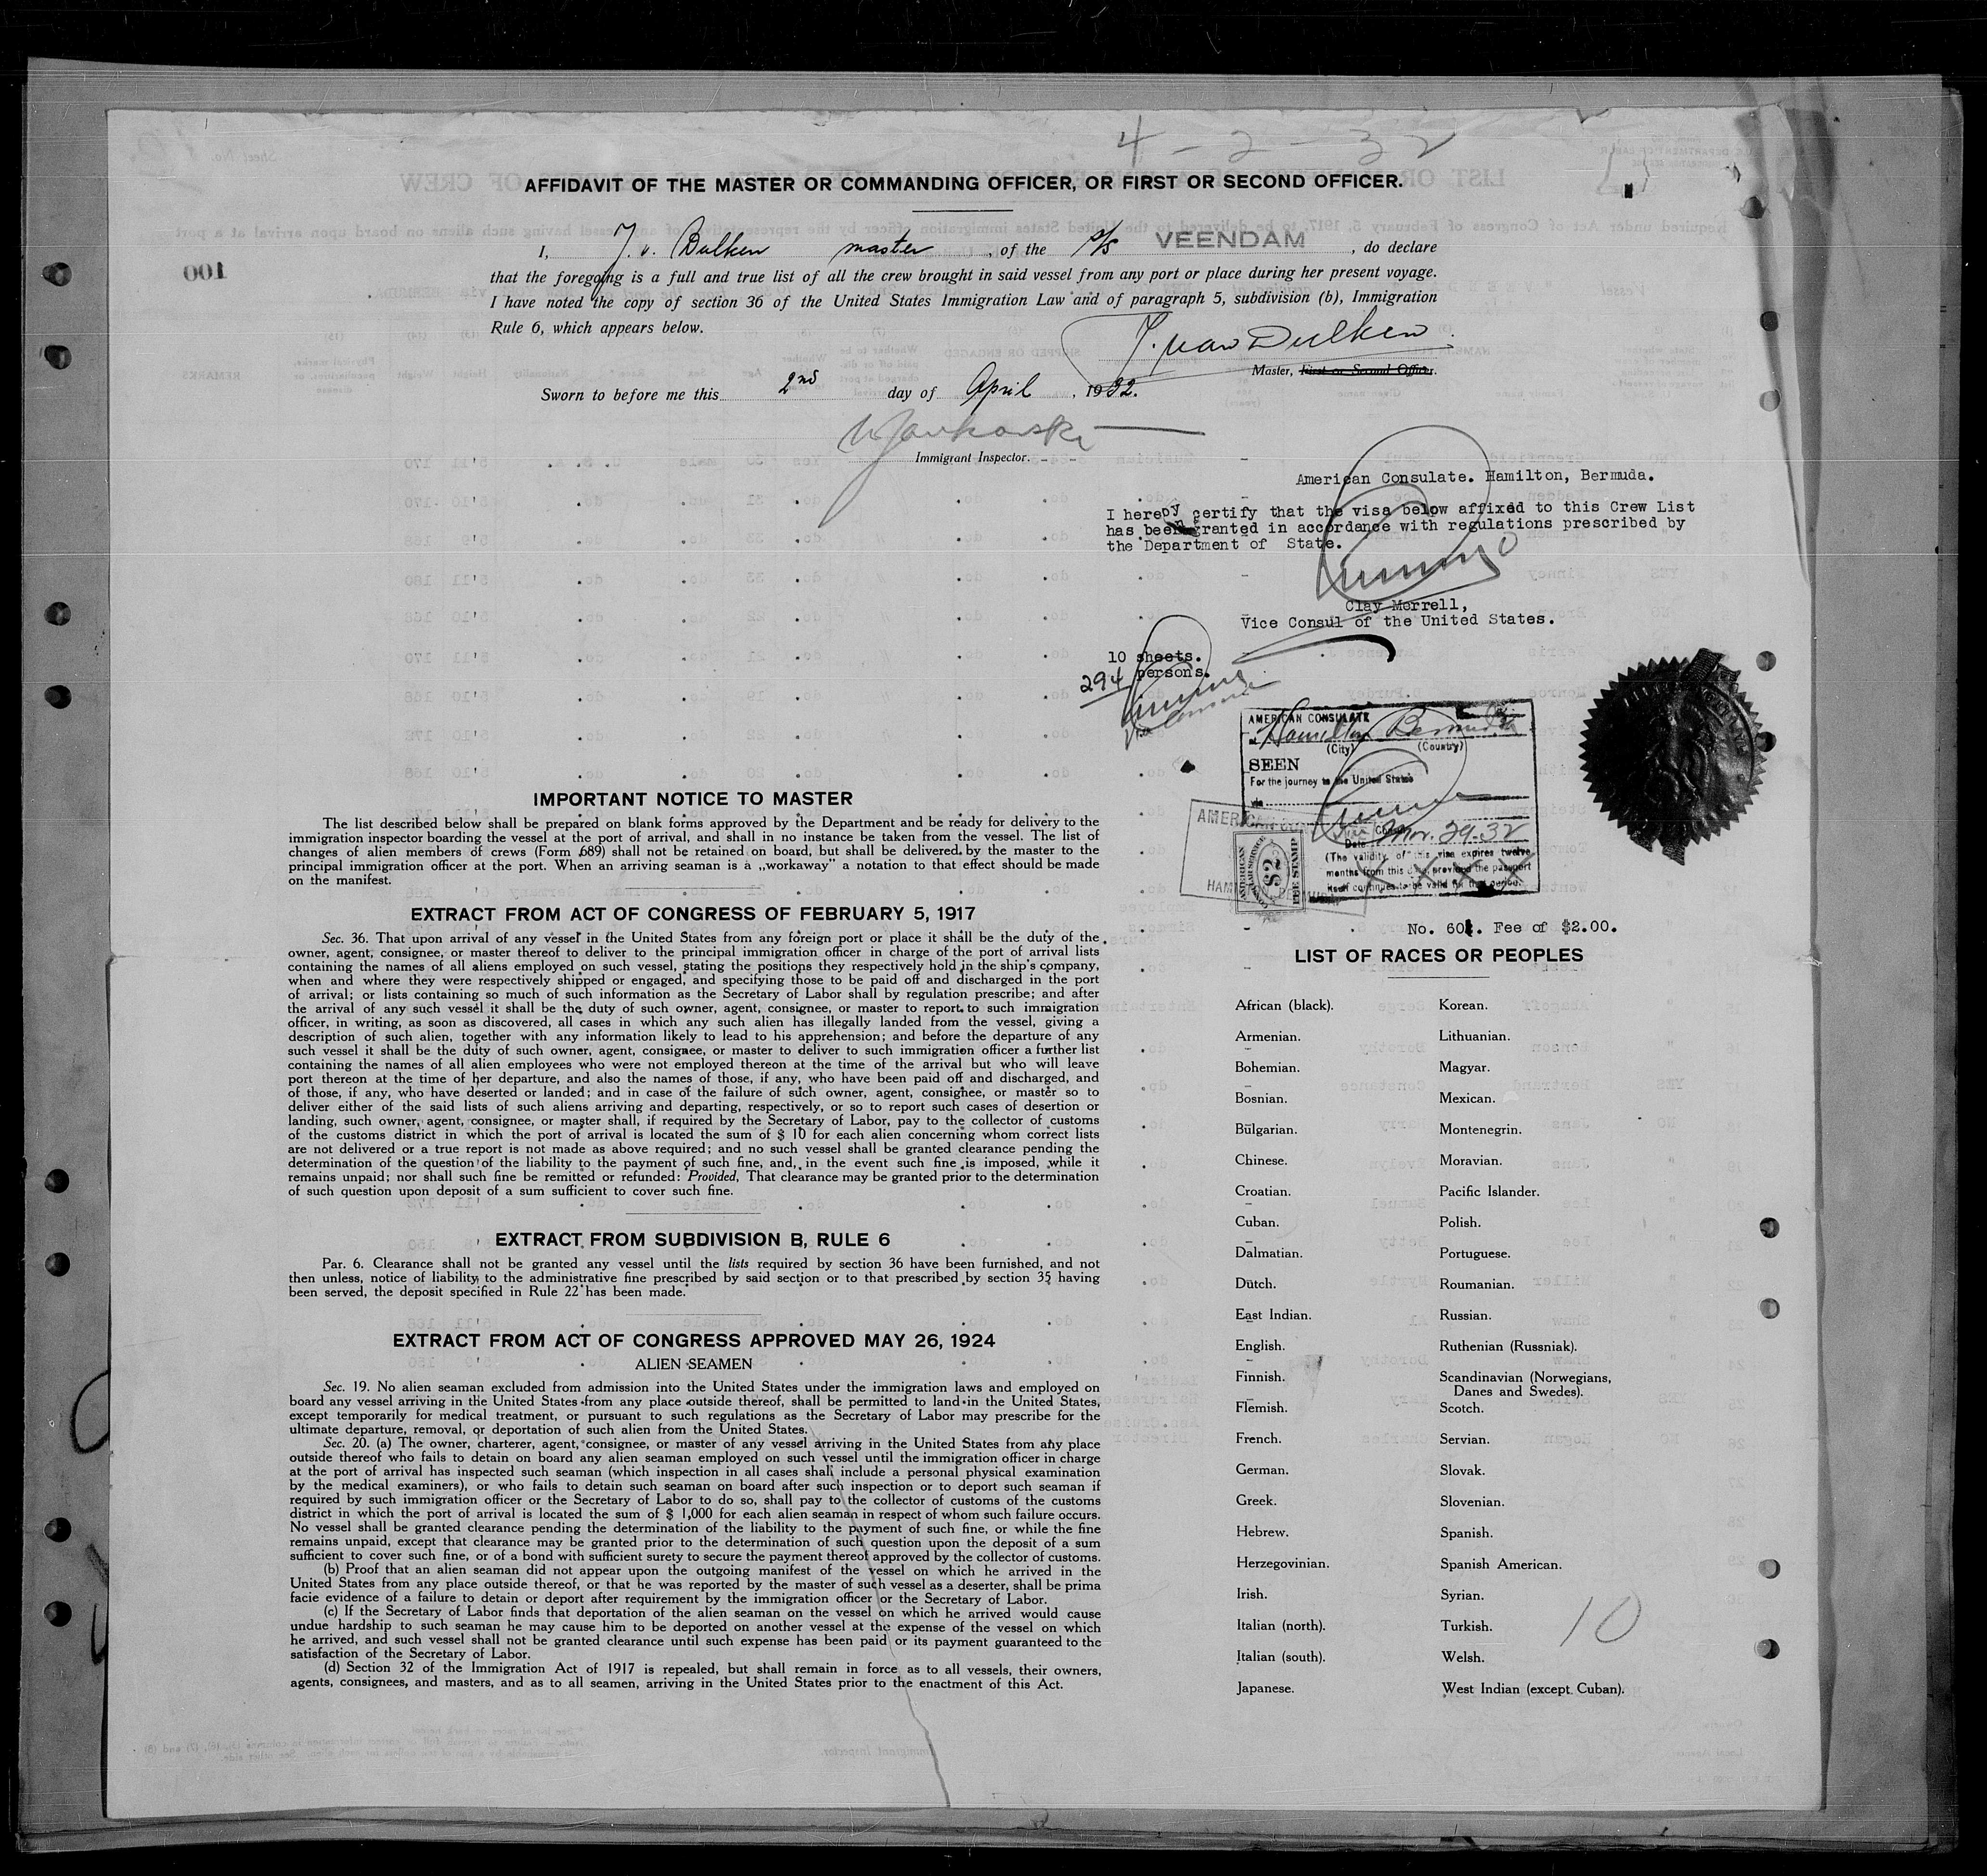 4 - 2 - 32
AFFIDAVIT OF THE MASTER OR COMMANDING OFFICER, OR FIRST OR SECOND OFFICER.
I, J. v. Dulken master, of the s/s VEENDAM, do declare
that the foregoing is a full and true list of all the crew brought in said vessel from any port or place during her present voyage.
I have noted the copy of section 36 of the United States Immigration Law and of paragraph 5, subdivision (b), Immigration
Rule 6, which appears below.
J. van Dulken
Master, First or Second Officer.
Sworn to before me this 2nd day of April, 1932.
Immigrant Inspector.
100
American Consulate. Hamilton, Bermuda.
I hereby certify that the visa below affixed to this Crew List
has been granted in accordance with regulations prescribed by
the Department of State.
Clay Merrell,
Vice Consul of the United States.
10 sheets.
294 persons.
AMERICAN CONSULATE
at Hamilton Bermuda
(City) (Country)
SEEN
For the journey to the United States
via
Date Mar. 29-32
(The validity of this visa expires twelve
months from this date provided the passport
itself continues to be valid for that period.
AMERICAN
$2
FEE STAMP
No. 601. Fee of $2.00.
IMPORTANT NOTICE TO MASTER
The list described below shall be prepared on blank forms approved by the Department and be ready for delivery to the
immigration inspector boarding the vessel at the port of arrival, and shall in no instance be taken from the vessel. The list of
changes of alien members of crews (Form 689) shall not be retained on board, but shall be delivered by the master to the
principal immigration officer at the port. When an arriving seaman is a „workaway” a notation to that effect should be made
on the manifest.
EXTRACT FROM ACT OF CONGRESS OF FEBRUARY 5, 1917
Sec. 36. That upon arrival of any vessel in the United States from any foreign port or place it shall be the duty of the
owner, agent, consignee, or master thereof to deliver to the principal immigration officer in charge of the port of arrival lists
containing the names of all aliens employed on such vessel, stating the positions they respectively hold in the ship's company,
when and where they were respectively shipped or engaged, and specifying those to be paid off and discharged in the port
of arrival; or lists containing so much of such information as the Secretary of Labor shall by regulation prescribe; and after
the arrival of any such vessel it shall be the duty of such owner, agent, consignee, or master to report to such immigration
officer, in writing, as soon as discovered, all cases in which any such alien has illegally landed from the vessel, giving a
description of such alien, together with any information likely to lead to his apprehension; and before the departure of any
such vessel it shall be the duty of such owner, agent, consignee, or master to deliver to such immigration officer a further list
containing the names of all alien employees who were not employed thereon at the time of the arrival but who will leave
port thereon at the time of her departure, and also the names of those, if any, who have been paid off and discharged, and
of those, if any, who have deserted or landed; and in case of the failure of such owner, agent, consignee, or master so to
deliver either of the said lists of such aliens arriving and departing, respectively, or so to report such cases of desertion or
landing, such owner, agent, consignee, or master shall, if required by the Secretary of Labor, pay to the collector of customs
of the customs district in which the port of arrival is located the sum of $ 10 for each alien concerning whom correct lists
are not delivered or a true report is not made as above required; and no such vessel shall be granted clearance pending the
determination of the question of the liability to the payment of such fine, and, in the event such fine is imposed, while it
remains unpaid; nor shall such fine be remitted or refunded: Provided, That clearance may be granted prior to the determination
of such question upon deposit of a sum sufficient to cover such fine.
EXTRACT FROM SUBDIVISION B, RULE 6
Par. 6. Clearance shall not be granted any vessel until the lists required by section 36 have been furnished, and not
then unless, notice of liability to the administrative fine prescribed by said section or to that prescribed by section 35 having
been served, the deposit specified in Rule 22 has been made.
EXTRACT FROM ACT OF CONGRESS APPROVED MAY 26, 1924
ALIEN SEAMEN
Sec. 19. No alien seaman excluded from admission into the United States under the immigration laws and employed on
board any vessel arriving in the United States from any place outside thereof, shall be permitted to land in the United States,
except temporarily for medical treatment, or pursuant to such regulations as the Secretary of Labor may prescribe for the
ultimate departure, removal, or deportation of such alien from the United States.
Sec. 20. (a) The owner, charterer, agent, consignee, or master of any vessel arriving in the United States from any place
outside thereof who fails to detain on board any alien seaman employed on such vessel until the immigration officer in charge
at the port of arrival has inspected such seaman (which inspection in all cases shall include a personal physical examination
by the medical examiners), or who fails to detain such seaman on board after such inspection or to deport such seaman if
required by such immigration officer or the Secretary of Labor to do so, shall pay to the collector of customs of the customs
district in which the port of arrival is located the sum of $ 1,000 for each alien seaman in respect of whom such failure occurs.
No vessel shall be granted clearance pending the determination of the liability to the payment of such fine, or while the fine
remains unpaid, except that clearance may be granted prior to the determination of such question upon the deposit of a sum
sufficient to cover such fine, or of a bond with sufficient surety to secure the payment thereof approved by the collector of customs.
(b) Proof that an alien seaman did not appear upon the outgoing manifest of the vessel on which he arrived in the
United States from any place outside thereof, or that he was reported by the master of such vessel as a deserter, shall be prima
facie evidence of a failure to detain or deport after requirement by the immigration officer or the Secretary of Labor.
(c) If the Secretary of Labor finds that deportation of the alien seaman on the vessel on which he arrived would cause
undue hardship to such seaman he may cause him to be deported on another vessel at the expense of the vessel on which
he arrived, and such vessel shall not be granted clearance until such expense has been paid or its payment guaranteed to the
satisfaction of the Secretary of Labor.
(d) Section 32 of the Immigration Act of 1917 is repealed, but shall remain in force as to all vessels, their owners,
agents, consignees, and masters, and as to all seamen, arriving in the United States prior to the enactment of this Act.
LIST OF RACES OR PEOPLES
African (black). Korean.
Armenian. Lithuanian.
Bohemian. Magyar.
Bosnian. Mexican.
Bulgarian. Montenegrin.
Chinese. Moravian.
Croatian. Pacific Islander.
Cuban. Polish.
Dalmatian. Portuguese.
Dutch. Roumanian.
East Indian. Russian.
English. Ruthenian (Russniak).
Finnish. Scandinavian (Norwegians,
Danes and Swedes).
Flemish. Scotch.
French. Servian.
German. Slovak.
Greek. Slovenian.
Hebrew. Spanish.
Herzegovinian. Spanish American.
Irish. Syrian.
Italian (north). Turkish.
Italian (south). Welsh.
Japanese. West Indian (except Cuban).
10